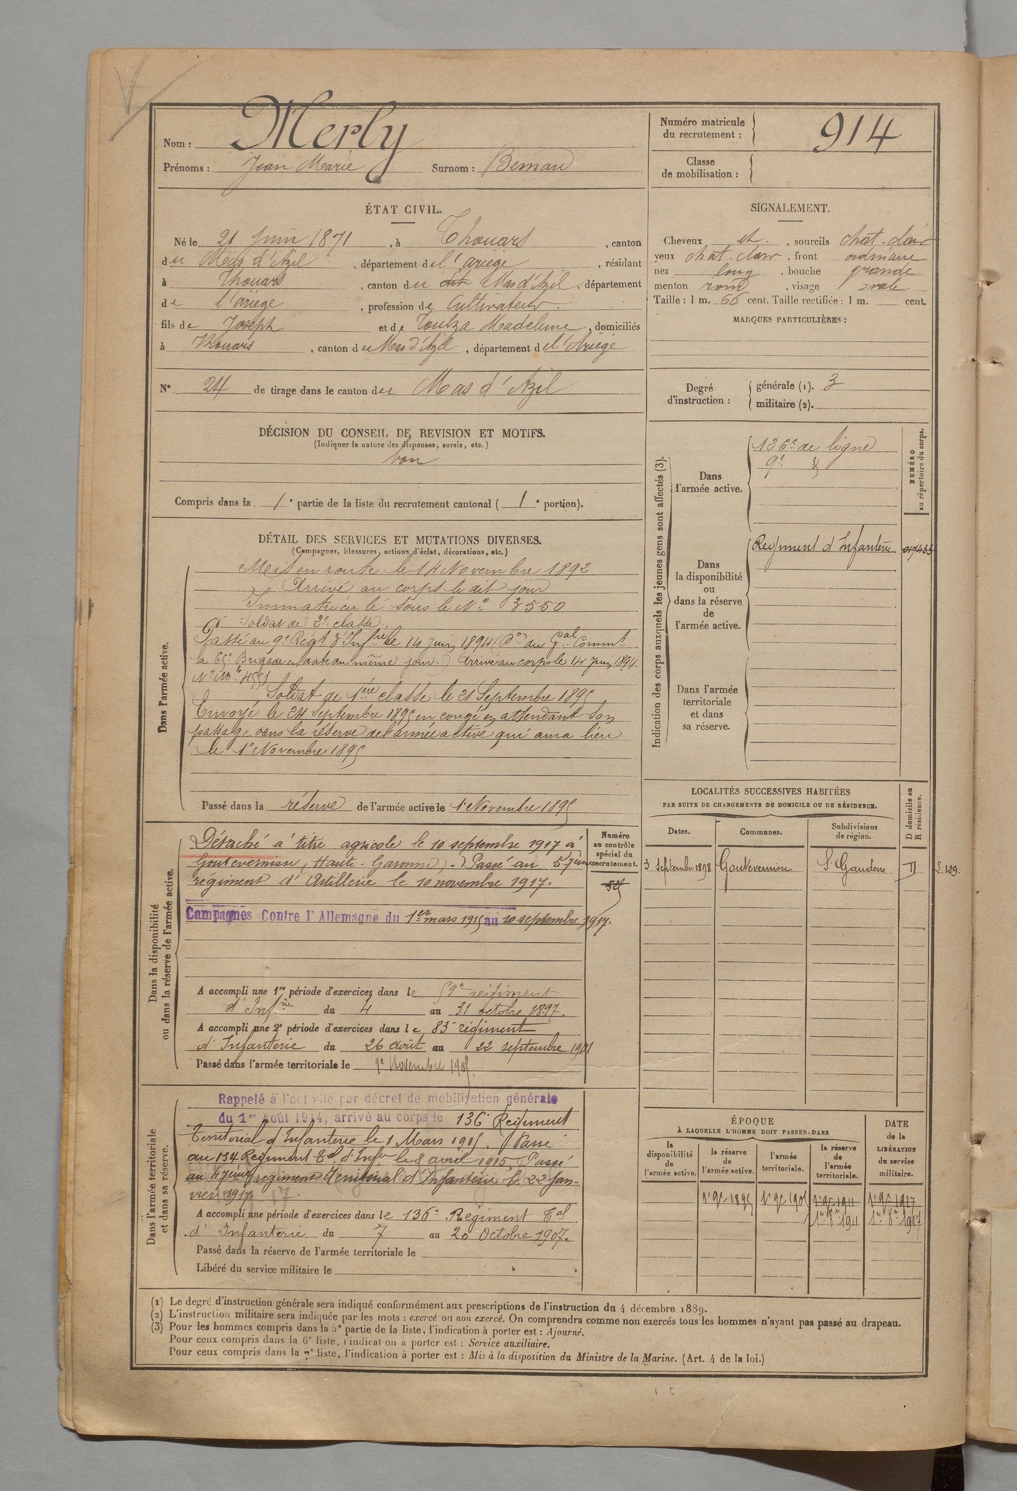 Nom : Merly
Prénoms : Jean Marie Surnom : Bernard
Numéro matricule du recrutement : 914
Classe de mobilisation :
ÉTAT CIVIL.
Né le 21 Juin 1871, à Thouars, canton
du Mas d'Azil, département de l'ariège, résidant
à Thouars, canton du dit Mas d'Azil, département
de l'ariège, profession de Cultivateur
fils de Joseph et de Toulza Madeleine, domiciliés
à Thouars, canton du Mas d'Azil, département de l'Ariège
N° 24 de tirage dans le canton du Mas d'Azil
SIGNALEMENT.
Cheveux ch., sourcils chat. clair
yeux chat. clair, front ordinaire
nez long, bouche grande
menton rond, visage ovale
Taille : 1 m. 66 cent. Taille rectifiée : 1 m. cent.
MARQUES PARTICULIÈRES :
Degré d'instruction : générale (1). 3
militaire (2).
DÉCISION DU CONSEIL DE REVISION ET MOTIFS.
(Indiquer la nature des dispenses, sursis, etc.)
bon
Compris dans la 1e partie de la liste du recrutement cantonal ( 1e portion).
DÉTAIL DES SERVICES ET MUTATIONS DIVERSES.
(Campagnes, blessures, actions d'éclat, décorations, etc.)
Dans l'armée active.
Mis en route le 14 Novembre 1892
Arrivé au corps le dit jour
Immatriculé sous le N° 3550
Soldat de 2e classe.
Passé au 9e Regt d'Infrie le 14 juin 1894 (Don du Gal Commt
la 65e Brigade en date du même jour) Arrivé au corps le 14 juin 1894.
Soldat de 1ère classe le 21 Septembre 1895
Envoyé le 24 septembre 1895 en congé en attendant son
passage dans la réserve de l'armée active qui aura lieu
le 1er Novembre 1895
Passé dans la réserve de l'armée active le 1er Novembre 1895
Indication des corps auxquels les jeunes gens sont affectés (3).
NUMÉRO au répertoire du corps.
Dans l'armée active.
136e de ligne
9e
Dans la disponibilité ou dans la réserve de l'armée active.
Regiment d'Infanterie
Dans l'armée territoriale et dans sa réserve.
LOCALITÉS SUCCESSIVES HABITÉES
PAR SUITE DE CHANGEMENTS DE DOMICILE OU DE RÉSIDENCE.
Dates. Communes. Subdivisions de région. D domicile ou R résidence.
3 septembre 1898 Goutevernisse St Gaudens D
Dans la disponibilité ou dans la réserve de l'armée active.
Numéro au contrôle spécial du recrutement.
Détaché à titre agricole le 10 septembre 1917 à
Goutevernisse, (Haute-Garonne). Passé au 57ème
régiment d'Artillerie le 10 novembre 1917.
Campagnes Contre l'Allemagne du 1er mars 1915 au 10 septembre 1917.
A accompli une 1re période d'exercices dans le 59e régiment
d'Infie du 4 au 31 octobre 1897.
A accompli une 2e période d'exercices dans le 83e régiment
d'Infanterie du 26 août au 22 septembre 1901
Passé dans l'armée territoriale le 1er Novembre 1905.
Dans l'armée territoriale et dans sa réserve.
Rappelé à l'activité par décret de mobilisation générale
du 1er août 1914, arrivé au corps le 136e Régiment
Territorial d'Infanterie le 1 Mars 1915. Passé
au 134 Régiment Tal d'Infie le 8 avril 1915 Passé
au régiment Territorial d'Infanterie le 22 Jan-
vier 1917
A accompli une période d'exercices dans le 136e Régiment Tal
d'Infanterie du 7 au 20 Octobre 1907.
Passé dans la réserve de l'armée territoriale le
Libéré du service militaire le
ÉPOQUE
A LAQUELLE L'HOMME DOIT PASSER DANS
la disponibilité de l'armée active. la réserve de l'armée active. l'armée territoriale. la réserve de l'armée territoriale.
DATE de la LIBÉRATION du service militaire.
1er 9e 1895 1er 9e 1905 1er 9e 1911 1er 9e 1917
1er 8e 1911 1er 8e 1917
(1) Le degré d'instruction générale sera indiqué conformément aux prescriptions de l'instruction du 4 décembre 1889.
(2) L'instruction militaire sera indiquée par les mots : exercé ou non exercé. On comprendra comme non exercés tous les hommes n'ayant pas passé au drapeau.
(3) Pour les hommes compris dans la 5e partie de la liste, l'indication à porter est : Ajourné.
Pour ceux compris dans la 6e liste, l'indication à porter est : Service auxiliaire.
Pour ceux compris dans la 7e liste, l'indication à porter est : Mis à la disposition du Ministre de la Marine. (Art. 4 de la loi.)